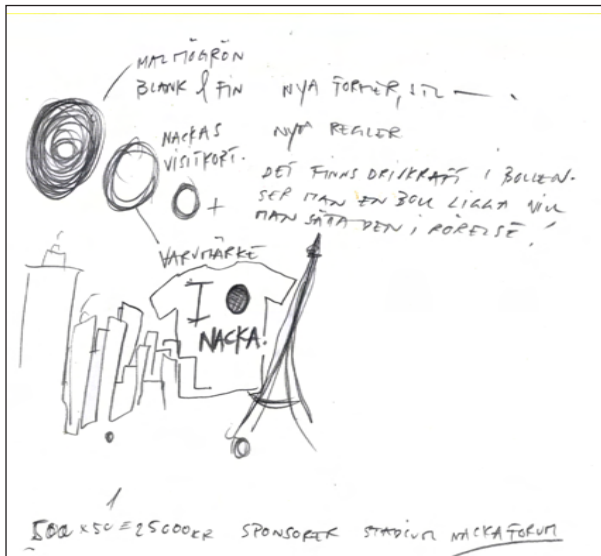 MALMÖGRÖN
BLANK & FIN
NYA FORMER, STL
NACKAS
VISITKORT.
NYA REGLER
DET FINNS DRIVKRAFT I BOLLEN.
SER MAN EN BOLL LIGGA VILL
MAN SÄTTA DEN I RÖRELSE!
VARUMÄRKE
I
NACKA!
500 x 50 = 25000 KR SPONSORER STADIUM NACKA FORUM